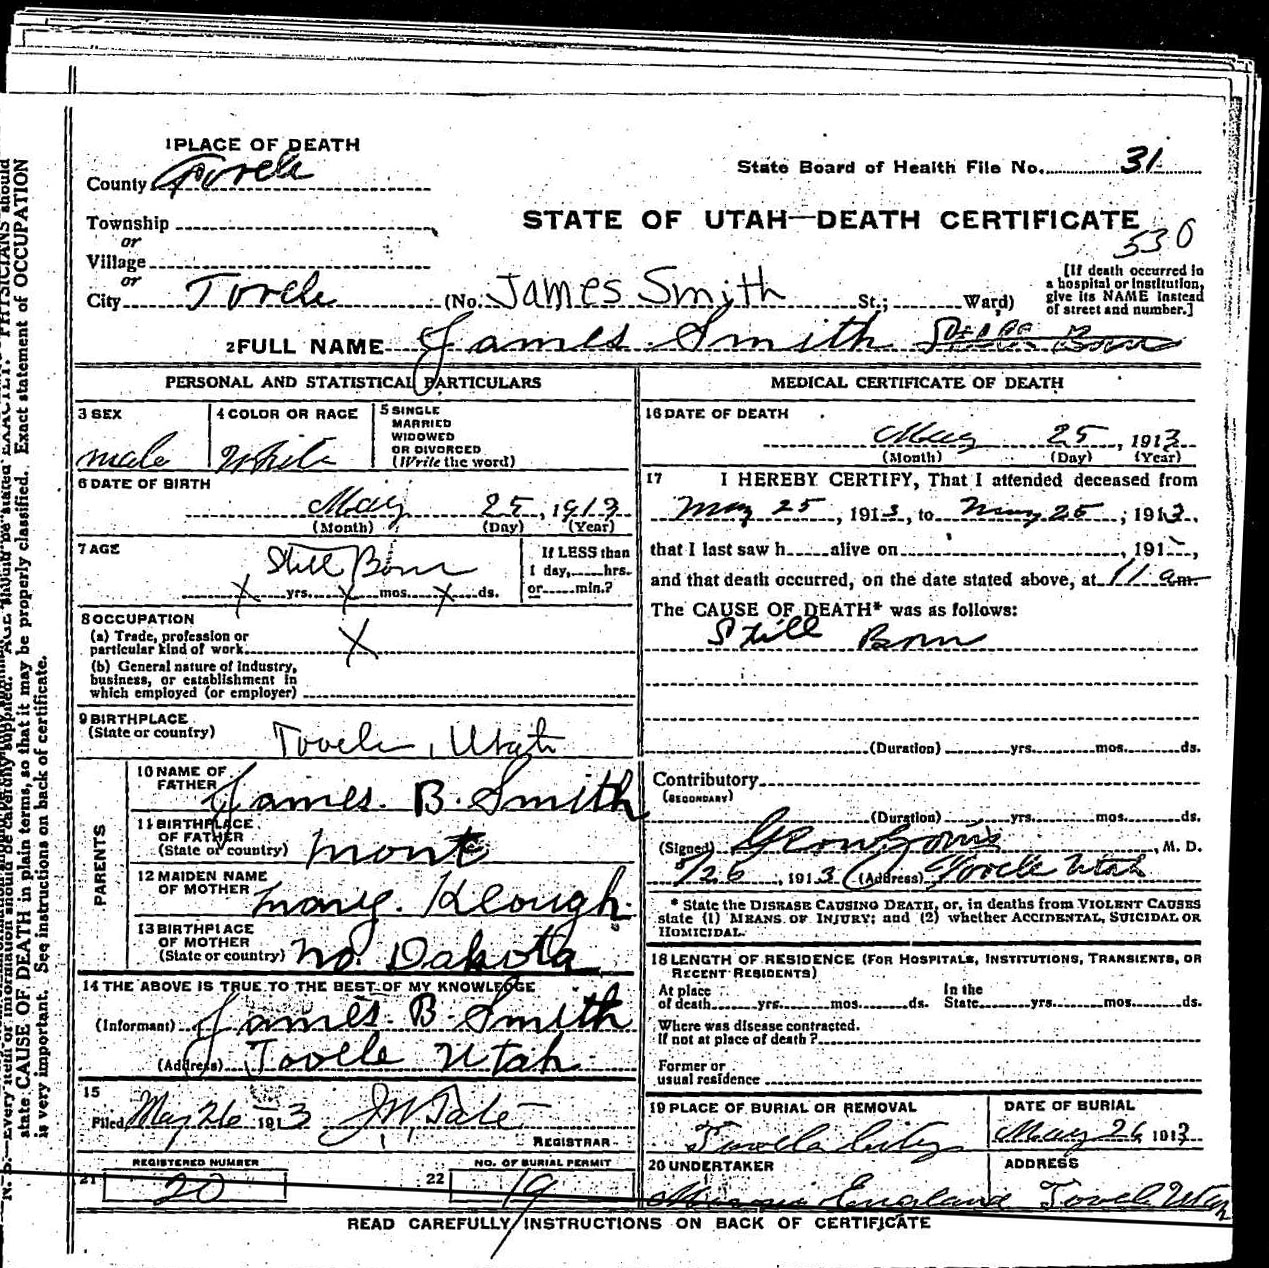 1 PLACE OF DEATH
County Tooele
State Board of Health File No. 31
Township
STATE OF UTAH—DEATH CERTIFICATE
530
or
Village
or
City Tooele (No. James Smith St.; Ward)
[If death occurred in
a hospital or institution,
give its NAME instead
of street and number.]
2 FULL NAME James Smith Still Born
PERSONAL AND STATISTICAL PARTICULARS
3 SEX
male
4 COLOR OR RACE
White
5 SINGLE
MARRIED
WIDOWED
OR DIVORCED
(Write the word)
6 DATE OF BIRTH
May 25, 1913
(Month) (Day) (Year)
7 AGE
Still Born
X yrs. X mos. X ds.
If LESS than
1 day, hrs.
or min.?
8 OCCUPATION
(a) Trade, profession or
particular kind of work X
(b) General nature of industry,
business, or establishment in
which employed (or employer)
9 BIRTHPLACE
(State or country)
Tooele, Utah
PARENTS
10 NAME OF
FATHER
James. B. Smith
11 BIRTHPLACE
OF FATHER
(State or country) Mont
12 MAIDEN NAME
OF MOTHER
Mary. Keough
13 BIRTHPLACE
OF MOTHER
(State or country) No. Dakota
14 THE ABOVE IS TRUE TO THE BEST OF MY KNOWLEDGE
(Informant) James. B. Smith
(Address) Tooele Utah
15
Filed May 26 1913
REGISTRAR
REGISTERED NUMBER
21 20
NO. OF BURIAL PERMIT
22 19
MEDICAL CERTIFICATE OF DEATH
16 DATE OF DEATH
May 25, 1913
(Month) (Day) (Year)
17 I HEREBY CERTIFY, That I attended deceased from
May 25, 1913, to May 25, 1913,
that I last saw h alive on , 191 ,
and that death occurred, on the date stated above, at 11 am.
The CAUSE OF DEATH* was as follows:
Still Born
(Duration) yrs. mos. ds.
Contributory
(SECONDARY)
(Duration) yrs. mos. ds.
(Signed) , M. D.
5/26, 1913 (Address) Tooele Utah
* State the DISEASE CAUSING DEATH, or, in deaths from VIOLENT CAUSES
state (1) MEANS OF INJURY; and (2) whether ACCIDENTAL, SUICIDAL OR
HOMICIDAL.
18 LENGTH OF RESIDENCE (FOR HOSPITALS, INSTITUTIONS, TRANSIENTS, OR
RECENT RESIDENTS)
At place
of death yrs. mos. ds.
In the
State yrs. mos. ds.
Where was disease contracted.
If not at place of death?
Former or
usual residence
19 PLACE OF BURIAL OR REMOVAL
Tooele City
DATE OF BURIAL
May 26 1913
20 UNDERTAKER
England
ADDRESS
Tooele Utah
READ CAREFULLY INSTRUCTIONS ON BACK OF CERTIFICATE
PHYSICIANS should
state CAUSE OF DEATH in plain terms, so that it may be properly classified. Exact statement of OCCUPATION
is very important. See instructions on back of certificate.